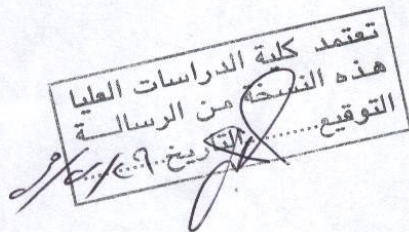 تعتمد كلية الدراسات العليا
هذه النسخة من الرسالة
التوقيع.........التاريخ